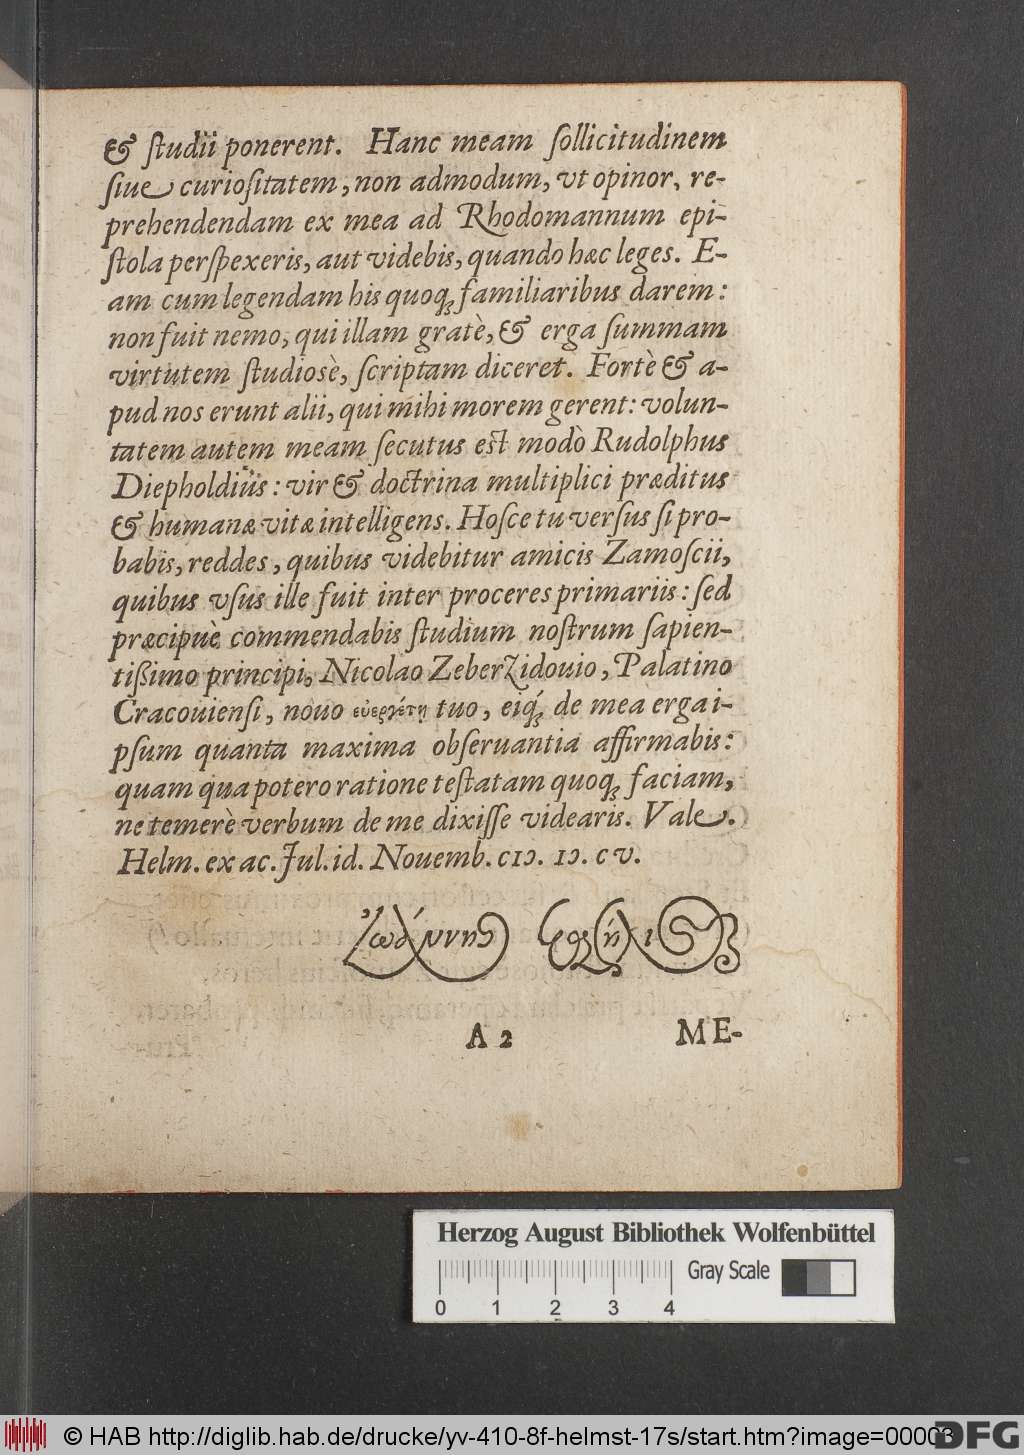 & ſtudii ponerent. Hanc meam ſollicitudinem
ſiue curioſitatem, non admodum, vt opinor, re-
prehendendam ex mea ad Rhodomannum epi-
ſtola perſpexeris, aut videbis, quando hæc leges. E-
am cum legendam his quoqꝫ familiaribus darem:
non fuit nemo, qui illam gratè, & erga ſummam
virtutem ſtudiosè, ſcriptam diceret. Fortè & a-
pud nos erunt alii, qui mihi morem gerent: volun-
tatem autem meam ſecutus eſt modò Rudolphus
Diepholdius: vir & doctrina multiplici præditus
& humanæ vitæ intelligens. Hoſce tu verſus ſi pro-
babis, reddes, quibus videbitur amicis Zamoſcii,
quibus vſus ille fuit inter proceres primariis: ſed
præcipuè commendabis ſtudium noſtrum ſapien-
tißimo principi, Nicolao Zeberzidouio, Palatino
Cracouienſi, nouo εὐεργέτῃ tuo, eiqꝫ́ de mea erga i-
pſum quanta maxima obſeruantia affirmabis:
quam qua potero ratione teſtatam quoqꝫ faciam,
ne temerè verbum de me dixiſſe videaris. Vale.
Helm. ex ac. Jul. id. Nouemb. cIↃ. IↃ. c v.
Ἰωάννης
A 2 ME-
Herzog August Bibliothek Wolfenbüttel
Gray Scale
0 1 2 3 4
© HAB http://diglib.hab.de/drucke/yv-410-8f-helmst-17s/start.htm?image=00003
DFG